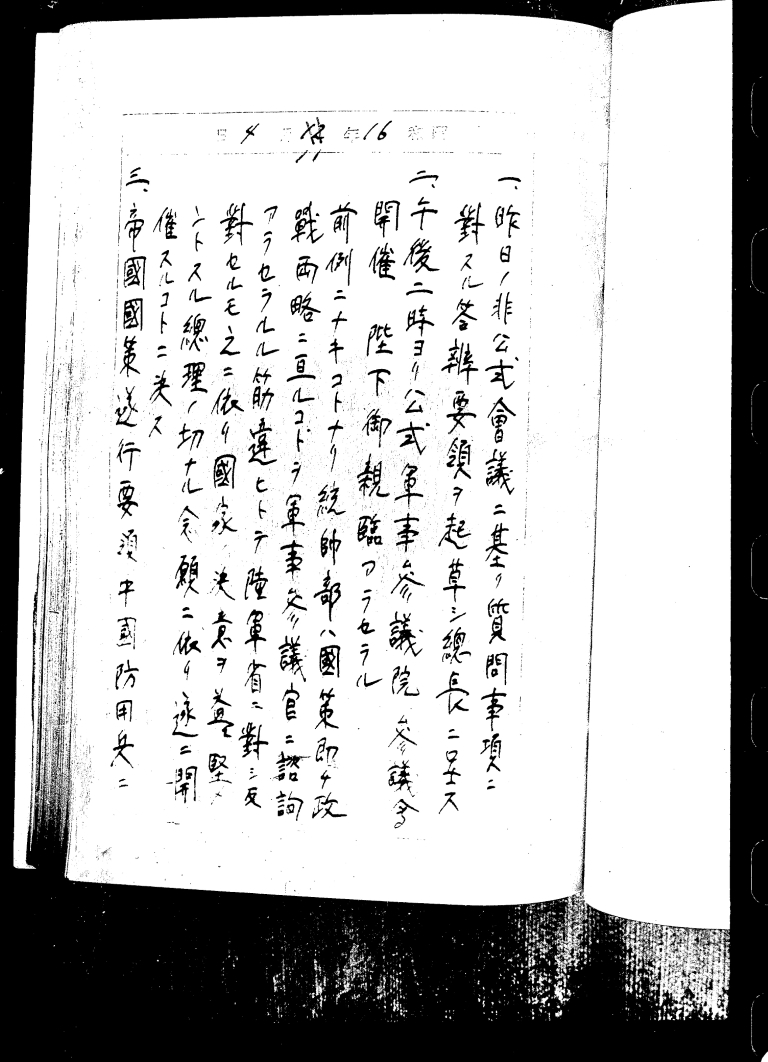 昭和16年11月4日
一、昨日ノ非公式會議ニ基ク質問事項ニ
對スル答辨要領ヲ起草シ總長ニ呈ス
二、午後二時ヨリ公式軍事参議院参議會
開催 陛下御親臨アラセラル
前例ニナキコトナリ統帥部ハ國策即チ政
戰両略ニ亘ルコトヲ軍事参議官ニ諮詢
アラセラルル筋違ヒトテ陸軍省ニ對シ反
對セルモ之ニ依リ國家ノ決意ヲ益々堅メ
ントスル總理ノ切ナル念願ニ依リ遂ニ開
催スルコトニ決ス
三、帝國國策遂行要領中國防用兵ニ